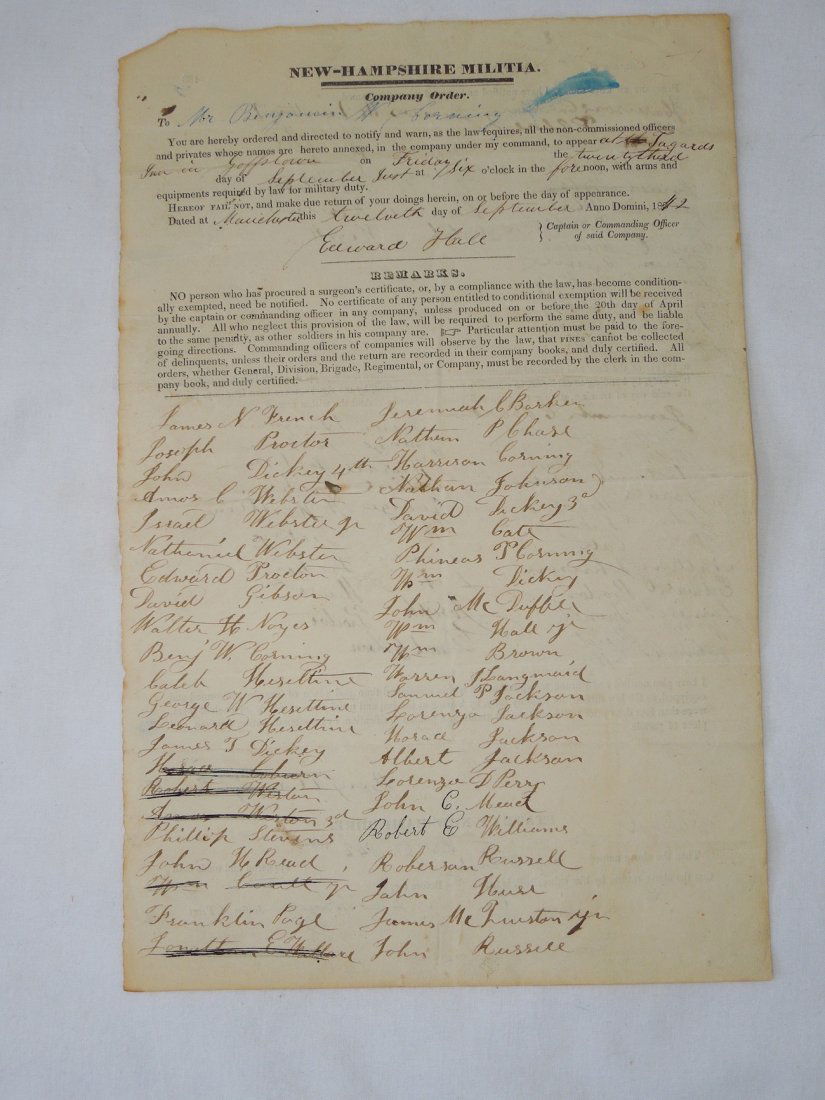 NEW-HAMPSHIRE MILITIA.
Company Order.
To Mr Benjamin W Corning
You are hereby ordered and directed to notify and warn, as the law requires, all the non-commissioned officers
and privates whose names are hereto annexed, in the company under my command, to appear at
Inn in Goffstown on Friday the twentythird
day of September Inst at Six o'clock in the forenoon, with arms and
equipments required by law for military duty.
HEREOF FAIL NOT, and make due return of your doings herein, on or before the day of appearance.
Dated at Manchester this twelveth day of September Anno Domini, 1842
Edward Hall } Captain or Commanding Officer
of said Company.
REMARKS.
NO person who has procured a surgeon's certificate, or, by a compliance with the law, has become condition-
ally exempted, need be notified. No certificate of any person entitled to conditional exemption will be received
by the captain or commanding officer in any company, unless produced on or before the 20th day of April
annually. All who neglect this provision of the law, will be required to perform the same duty, and be liable
to the same penalty, as other soldiers in his company are. ☞ Particular attention must be paid to the fore-
going directions. Commanding officers of companies will observe by the law, that FINES cannot be collected
of delinquents, unless their orders and the return are recorded in their company books, and duly certified. All
orders, whether General, Division, Brigade, Regimental, or Company, must be recorded by the clerk in the com-
pany book, and duly certified.
James N French
Joseph Proctor
John Dickey 4th
Amos C Webster
Israel Webster jr
Nathaniel Webster
Edward Proctor
David Gibson
Walter H Noyes
Benj W. Corning
Caleb Heseltine
George W Heseltine
Leonard Heseltine
James T Dickey
Horace Coburn
Robert Weston
Amos Weston 3d
Phillip Stevens
John H Read
Wm jr
Franklin Page
Jonathan E Wallace
Jeremiah C Barker
Nathan P Chase
Harrison Corning
Nathan Johnson
David Dickey 3d
Wm Cate
Phineas P Corning
Wm Dickey
John Mc Duffee
Wm Hall jr
Wm Brown
Warren J Langmaid
Samuel P Jackson
Lorenzo Jackson
Horace Jackson
Albert Jackson
Lorenzo D Perry
John C. Mead
Robert E Williams
Roberson Russell
John Huse
James Mc Thurston jr
John Russell